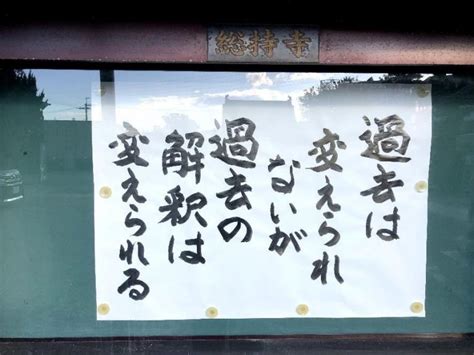 総持寺
過去は
変えられ
ないが
過去の
解釈は
変えられる